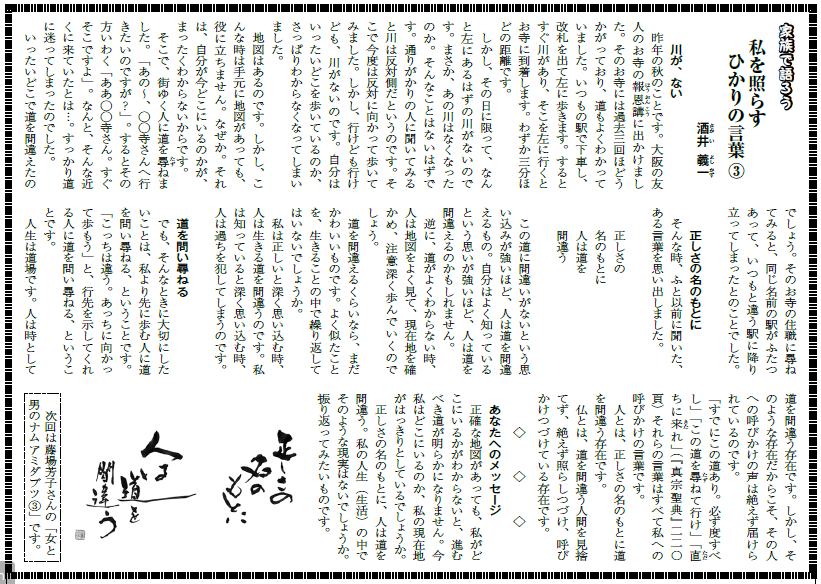 家族で語ろう
私を照らす
ひかりの言葉③
酒井 義一
川が、ない
昨年の秋のことです。大阪の友
人のお寺の報恩講に出かけまし
た。そのお寺には過去三回ほどう
かがっており、道もよくわかって
いました。いつもの駅で下車し、
改札を出て左に歩きます。すると
すぐ川があり、そこを左に行くと
お寺に到着します。わずか三分ほ
どの距離です。
しかし、その日に限って、なん
と左にあるはずの川がないので
す。まさか、あの川はなくなった
のか。そんなことはないはずで
す。通りがかりの人に聞いてみる
と川は反対側だというのです。そ
こで今度は反対に向かって歩いて
みました。しかし、行けども行け
ども、川がないのです。自分は
いったいどこを歩いているのか、
さっぱりわからなくなってしまい
ました。
地図はあるのです。しかし、こ
んな時は手元に地図があっても、
役に立ちません。なぜか。それ
は、自分が今どこにいるのかが、
まったくわからないからです。
そこで、街ゆく人に道を尋ねま
した。「あの～、〇〇寺さんへ行
きたいのですが？」。するとその
方いわく「ああ〇〇寺さん。すぐ
そこですよ」。なんと、そんな近
くに来ていたとは…。すっかり道
に迷ってしまったのでした。
いったいどこで道を間違えたの
でしょう。そのお寺の住職に尋ね
てみると、同じ名前の駅がふたつ
あって、いつもと違う駅に降り
立ってしまったとのことでした。
正しさの名のもとに
そんな時、ふと以前に聞いた、
ある言葉を思い出しました。
正しさの
名のもとに
人は道を
間違う
この道に間違いがないという思
い込みが強いほど、人は道を間違
えるもの。自分はよく知っている
という思いが強いほど、人は道を
間違えるのかもしれません。
逆に、道がよくわからない時、
人は地図をよく見て、現在地を確
かめ、注意深く歩んでいくので
しょう。
道を間違えるくらいなら、まだ
かわいいものです。よく似たこと
を、生きることの中で繰り返して
はいないでしょうか。
私は正しいと深く思い込む時、
人は生きる道を間違うのです。私
は知っていると深く思い込む時、
人は過ちを犯してしまうのです。
道を問い尋ねる
でも、そんなときに大切にした
いことは、私より先に歩む人に道
を問い尋ねる、ということです。
「こっちは違う。あっちに向かっ
て歩もう」と、行先を示してくれ
る人に道を問い尋ねる、というこ
とです。
人生は道場です。人は時として
道を間違う存在です。しかし、そ
のような存在だからこそ、その人
への呼びかけの声は絶えず届けら
れているのです。
「すでにこの道あり。必ず度すべ
し」「この道を尋ねて行け」「直
ちに来れ」（『真宗聖典』二二〇
頁）それらの言葉はすべて私への
呼びかけの言葉です。
人とは、正しさの名のもとに道
を間違う存在です。
仏とは、道を間違う人間を見捨
てず、絶えず照らしつづけ、呼び
かけつづけている存在です。
◇ ◇ ◇
あなたへのメッセージ
正確な地図があっても、私がど
こにいるかがわからないと、進む
べき道が明らかになりません。今
私はどこにいるのか、私の現在地
がはっきりとしているでしょうか。
正しさの名のもとに、人は道を
間違う。私の人生（生活）の中で
そのような現実はないでしょうか。
振り返ってみたいものです。
正しさの
名の
もとに
人は
道を
間違う
次回は藤場芳子さんの「女と
男のナムアミダブツ③」です。